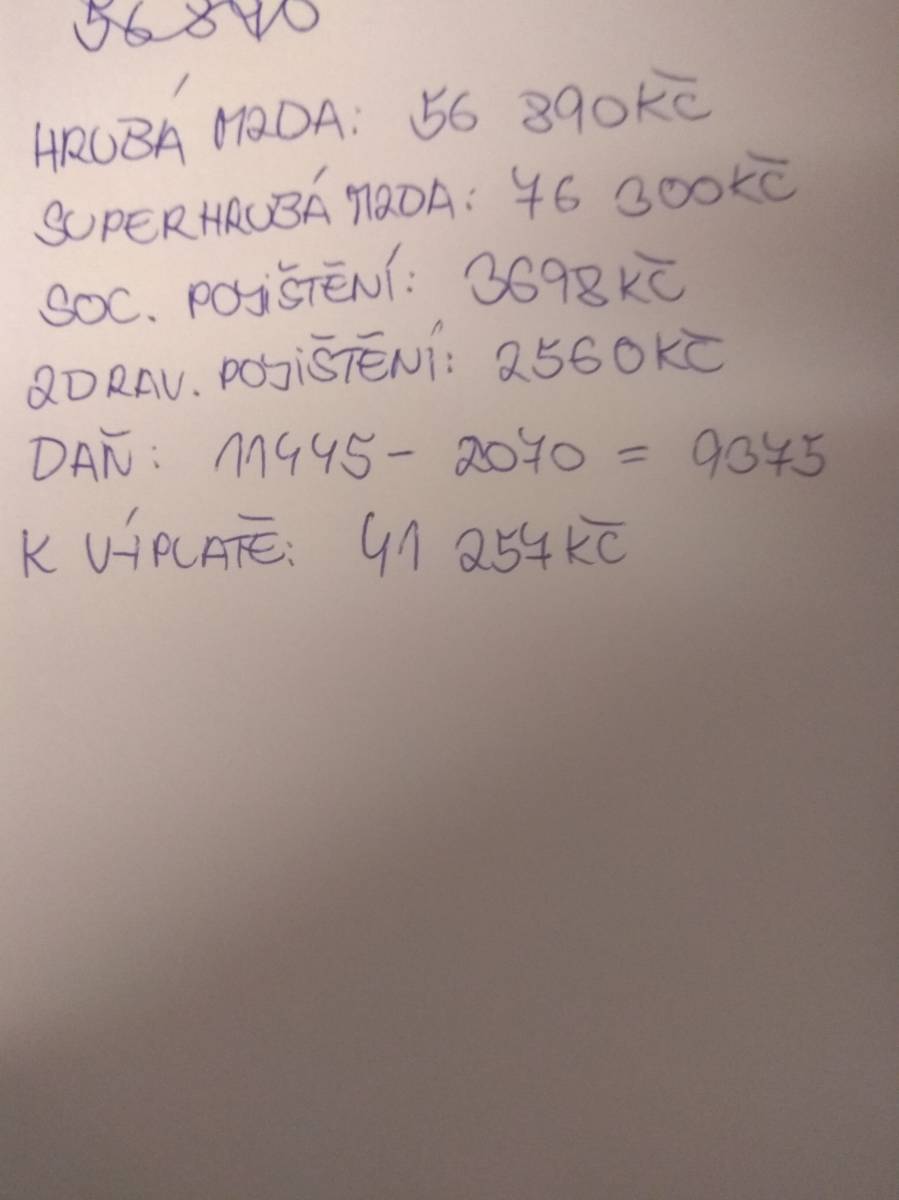 HRUBÁ MZDA: 56 890Kč
SUPERHRUBÁ MZDA: 76 300Kč
SOC. POJIŠTĚNÍ: 3698Kč
ZDRAV. POJIŠTĚNÍ: 2560Kč
DAŇ: 11445 - 2070 = 9375
K VÝPLATĚ: 41 257Kč